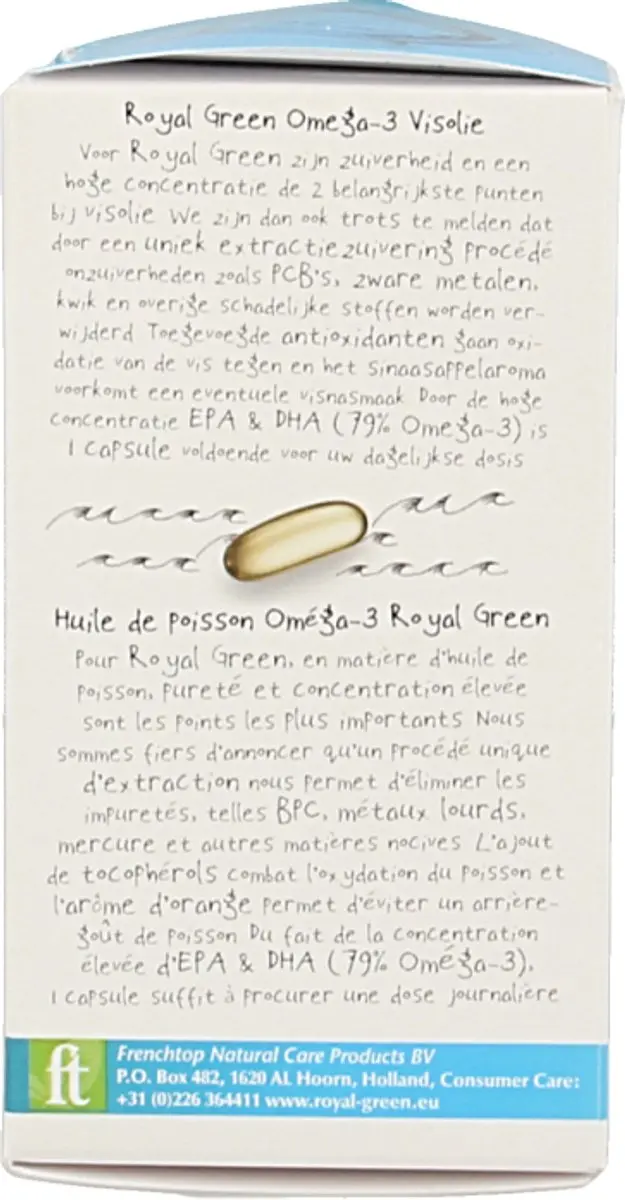 Royal Green Omega-3 Visolie
Voor Royal Green zijn zuiverheid en een
hoge concentratie de 2 belangrijkste punten
bij visolie We zijn dan ook trots te melden dat
door een uniek extractiezuivering procédé
onzuiverheden zoals PCB's, zware metalen,
kwik en overige schadelijke stoffen worden ver-
wijderd Toegevoegde antioxidanten gaan oxi-
datie van de vis tegen en het sinaasappelaroma
voorkomt een eventuele visnasmaak Door de hoge
concentratie EPA & DHA (79% Omega-3) is
1 capsule voldoende voor uw dagelijkse dosis
Huile de poisson Oméga-3 Royal Green
Pour Royal Green, en matière d'huile de
poisson, pureté et concentration élevée
sont les points les plus importants Nous
sommes fiers d'annoncer qu'un procédé unique
d'extraction nous permet d'éliminer les
impuretés, telles BPC, métaux lourds,
mercure et autres matières nocives L'ajout
de tocophérols combat l'oxydation du poisson et
l'arôme d'orange permet d'éviter un arrière-
goût de poisson Du fait de la concentration
élevée d'EPA & DHA (79% Oméga-3),
1 capsule suffit à procurer une dose journalière
ft
Frenchtop Natural Care Products BV
P.O. Box 482, 1620 AL Hoorn, Holland, Consumer Care:
+31 (0)226 364411 www.royal-green.eu